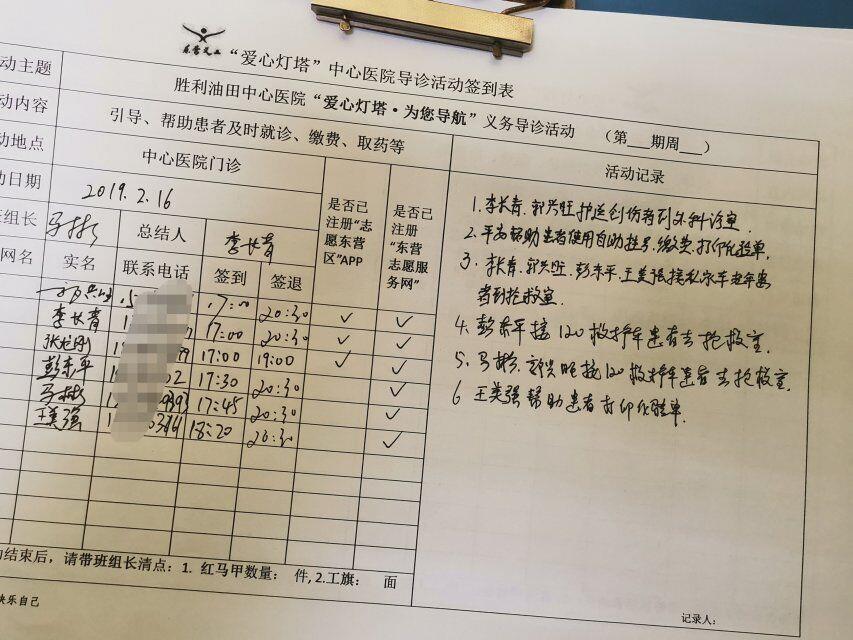 东营义工 “爱心灯塔”中心医院导诊活动签到表
动主题 胜利油田中心医院“爱心灯塔·为您导航”义务导诊活动 （第___期周___）
动内容 引导、帮助患者及时就诊、缴费、取药等
动地点 中心医院门诊
活动记录
动日期 2019.2.16
是否已注册“志愿东营区”APP
是否已注册“东营志愿服务网”
班组长 马彬 总结人 李长青
网名 实名 联系电话 签到 签退
17:00 20:30
李长青 17:00 20:30 ✓ ✓
张龙刚 17:00 19:00 ✓ ✓
彭东平 02 17:30 20:30 ✓
马彬 9393 17:45 20:30 ✓
王美强 18:20 20:30 ✓
1. 李长青、郭兴旺护送创伤者到外科诊室.
2. 帮助患者使用自助挂号、缴费、打印化验单.
3. 李长青、郭兴旺、彭东平、王美强接私家车
者到抢救室.
4. 彭东平接120救护车患者去抢救室.
5. 马彬、接120救护车患者去抢救室.
6 王美强帮助患者打印化验单.
动结束后，请带班组长清点：1. 红马甲数量： 件, 2.工旗： 面
快乐自己
记录人：